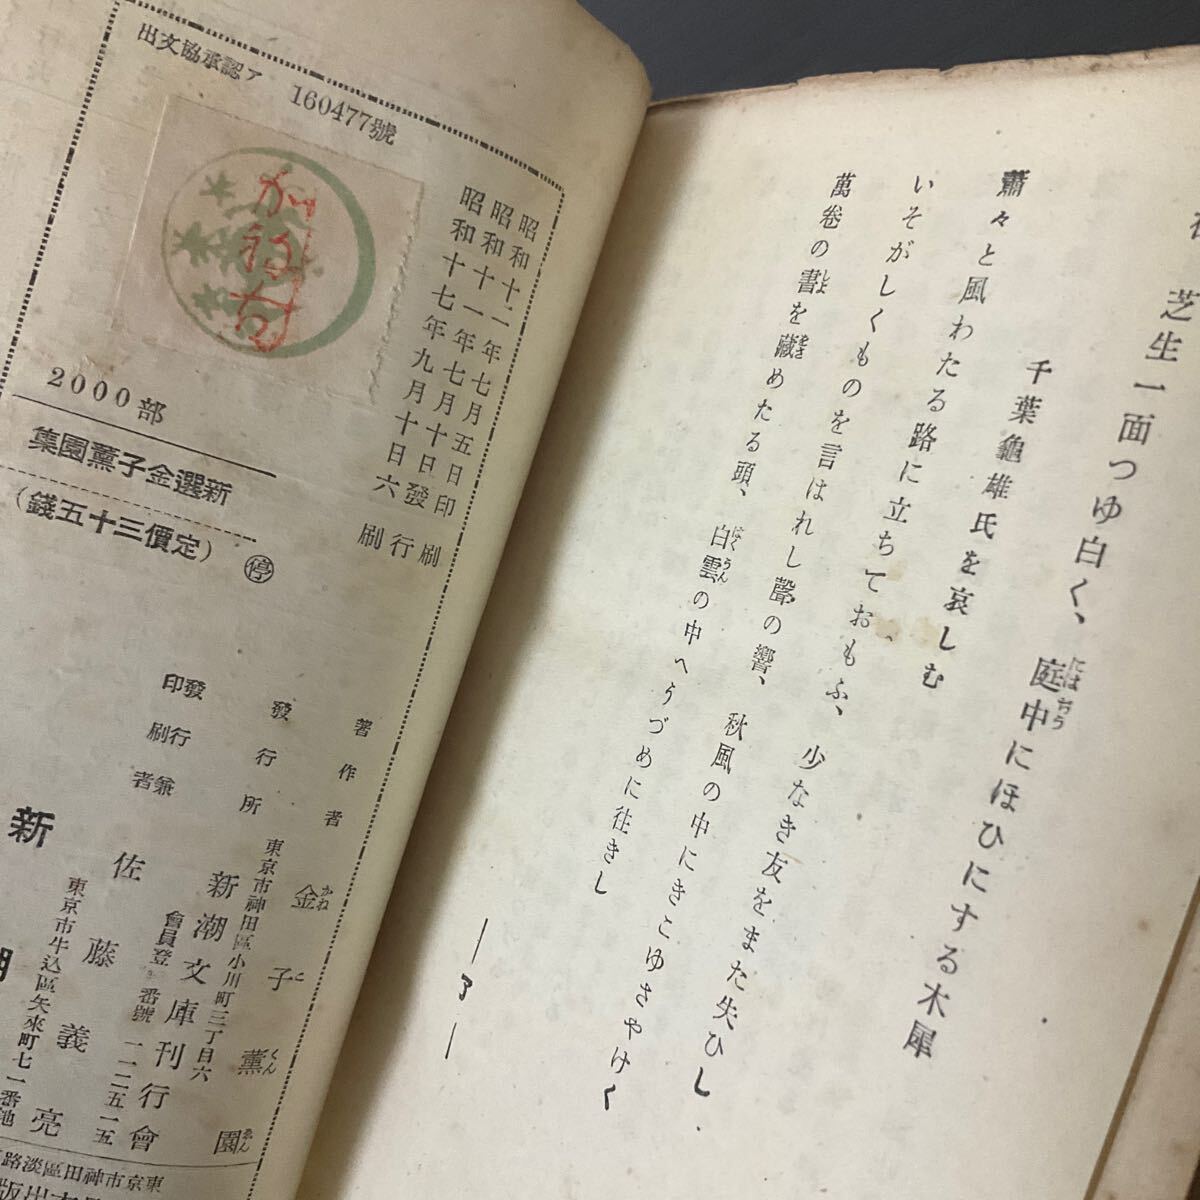 芝生一面つゆ白く、庭中にほひにする木犀
千葉龜雄氏を哀しむ
蕭々と風わたる路に立ちておもふ、少なき友をまた失ひし
いそがしくものを言はれし聲の響、秋風の中にきこゆさやけく
萬卷の書を藏めたる頭、白雲の中へうづめに往きし
―了―
出文協承認ア
160477號
昭和十二年七月五日印刷
昭和十一年七月十日發行
昭和十七年九月十日六刷
2000部
新選金子薫園集
(定價三十五錢)
停
著作者 金子薫園
發行所
東京市神田區小川町三丁目六
新潮文庫刊行會
會員登番號一一二五一五
發行兼印刷者
佐藤義亮
東京市牛込區矢來町七一番地
新潮
東京市神田區淡路